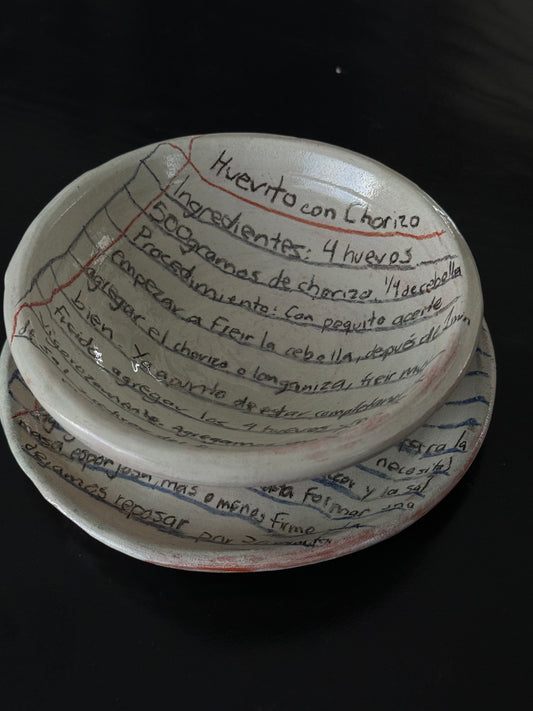 Huevito con Chorizo
Ingredientes: 4 huevos
500gramos de chorizo 1/4 de cebolla
Procedimiento: Con poquito aceite
empezar a freir la cebolla, después de 2min
agregar el chorizo o longaniza, freir muy
bien. Ya apunto de estar completame
freido agregar los 4 huevos
vigorozamente. Agregam
para la
necesita)
y la sal
masa esponjosa, mas o menos firme formar una
dejamos reposar por